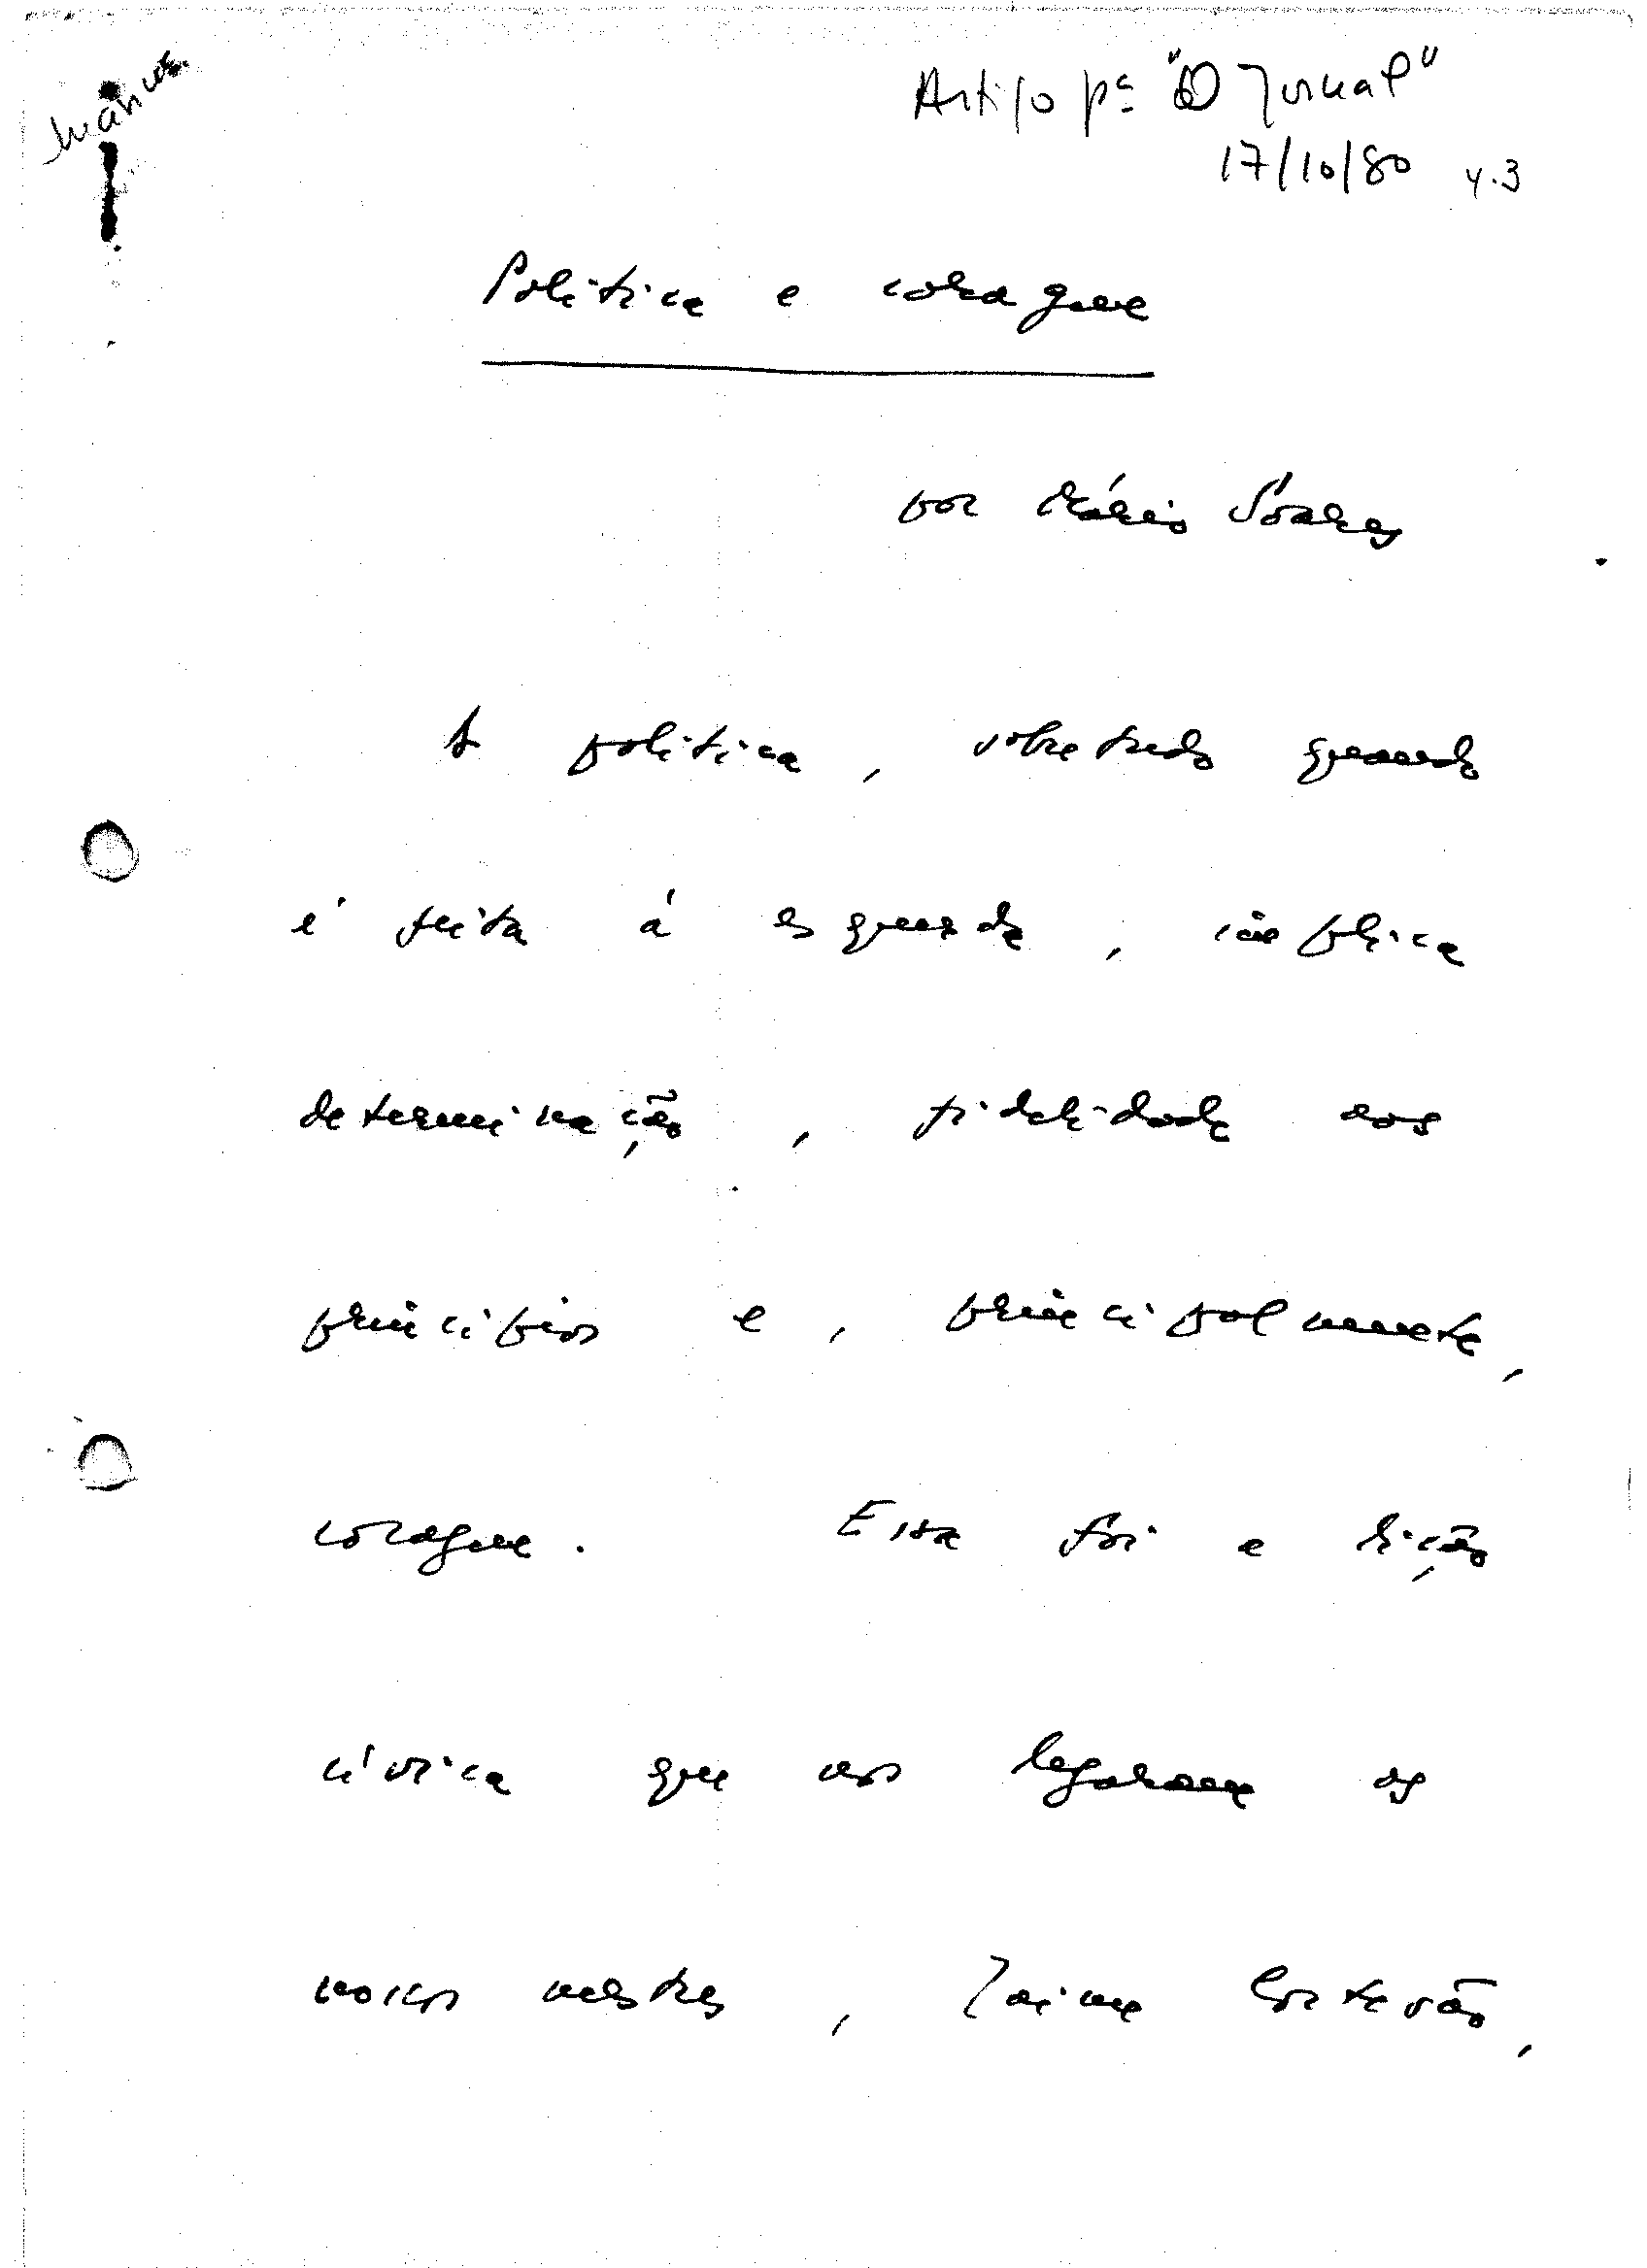 Manus.
Artigo pª "O Jornal"
17/10/80
Política e coragem
por Mário Soares
A política, sobretudo quando
é feita à esquerda, implica
determinação, fidelidade aos
princípios e, principalmente,
coragem. Essa foi a lição
cívica que nos legaram os
nossos mestres, Jaime Cortesão,